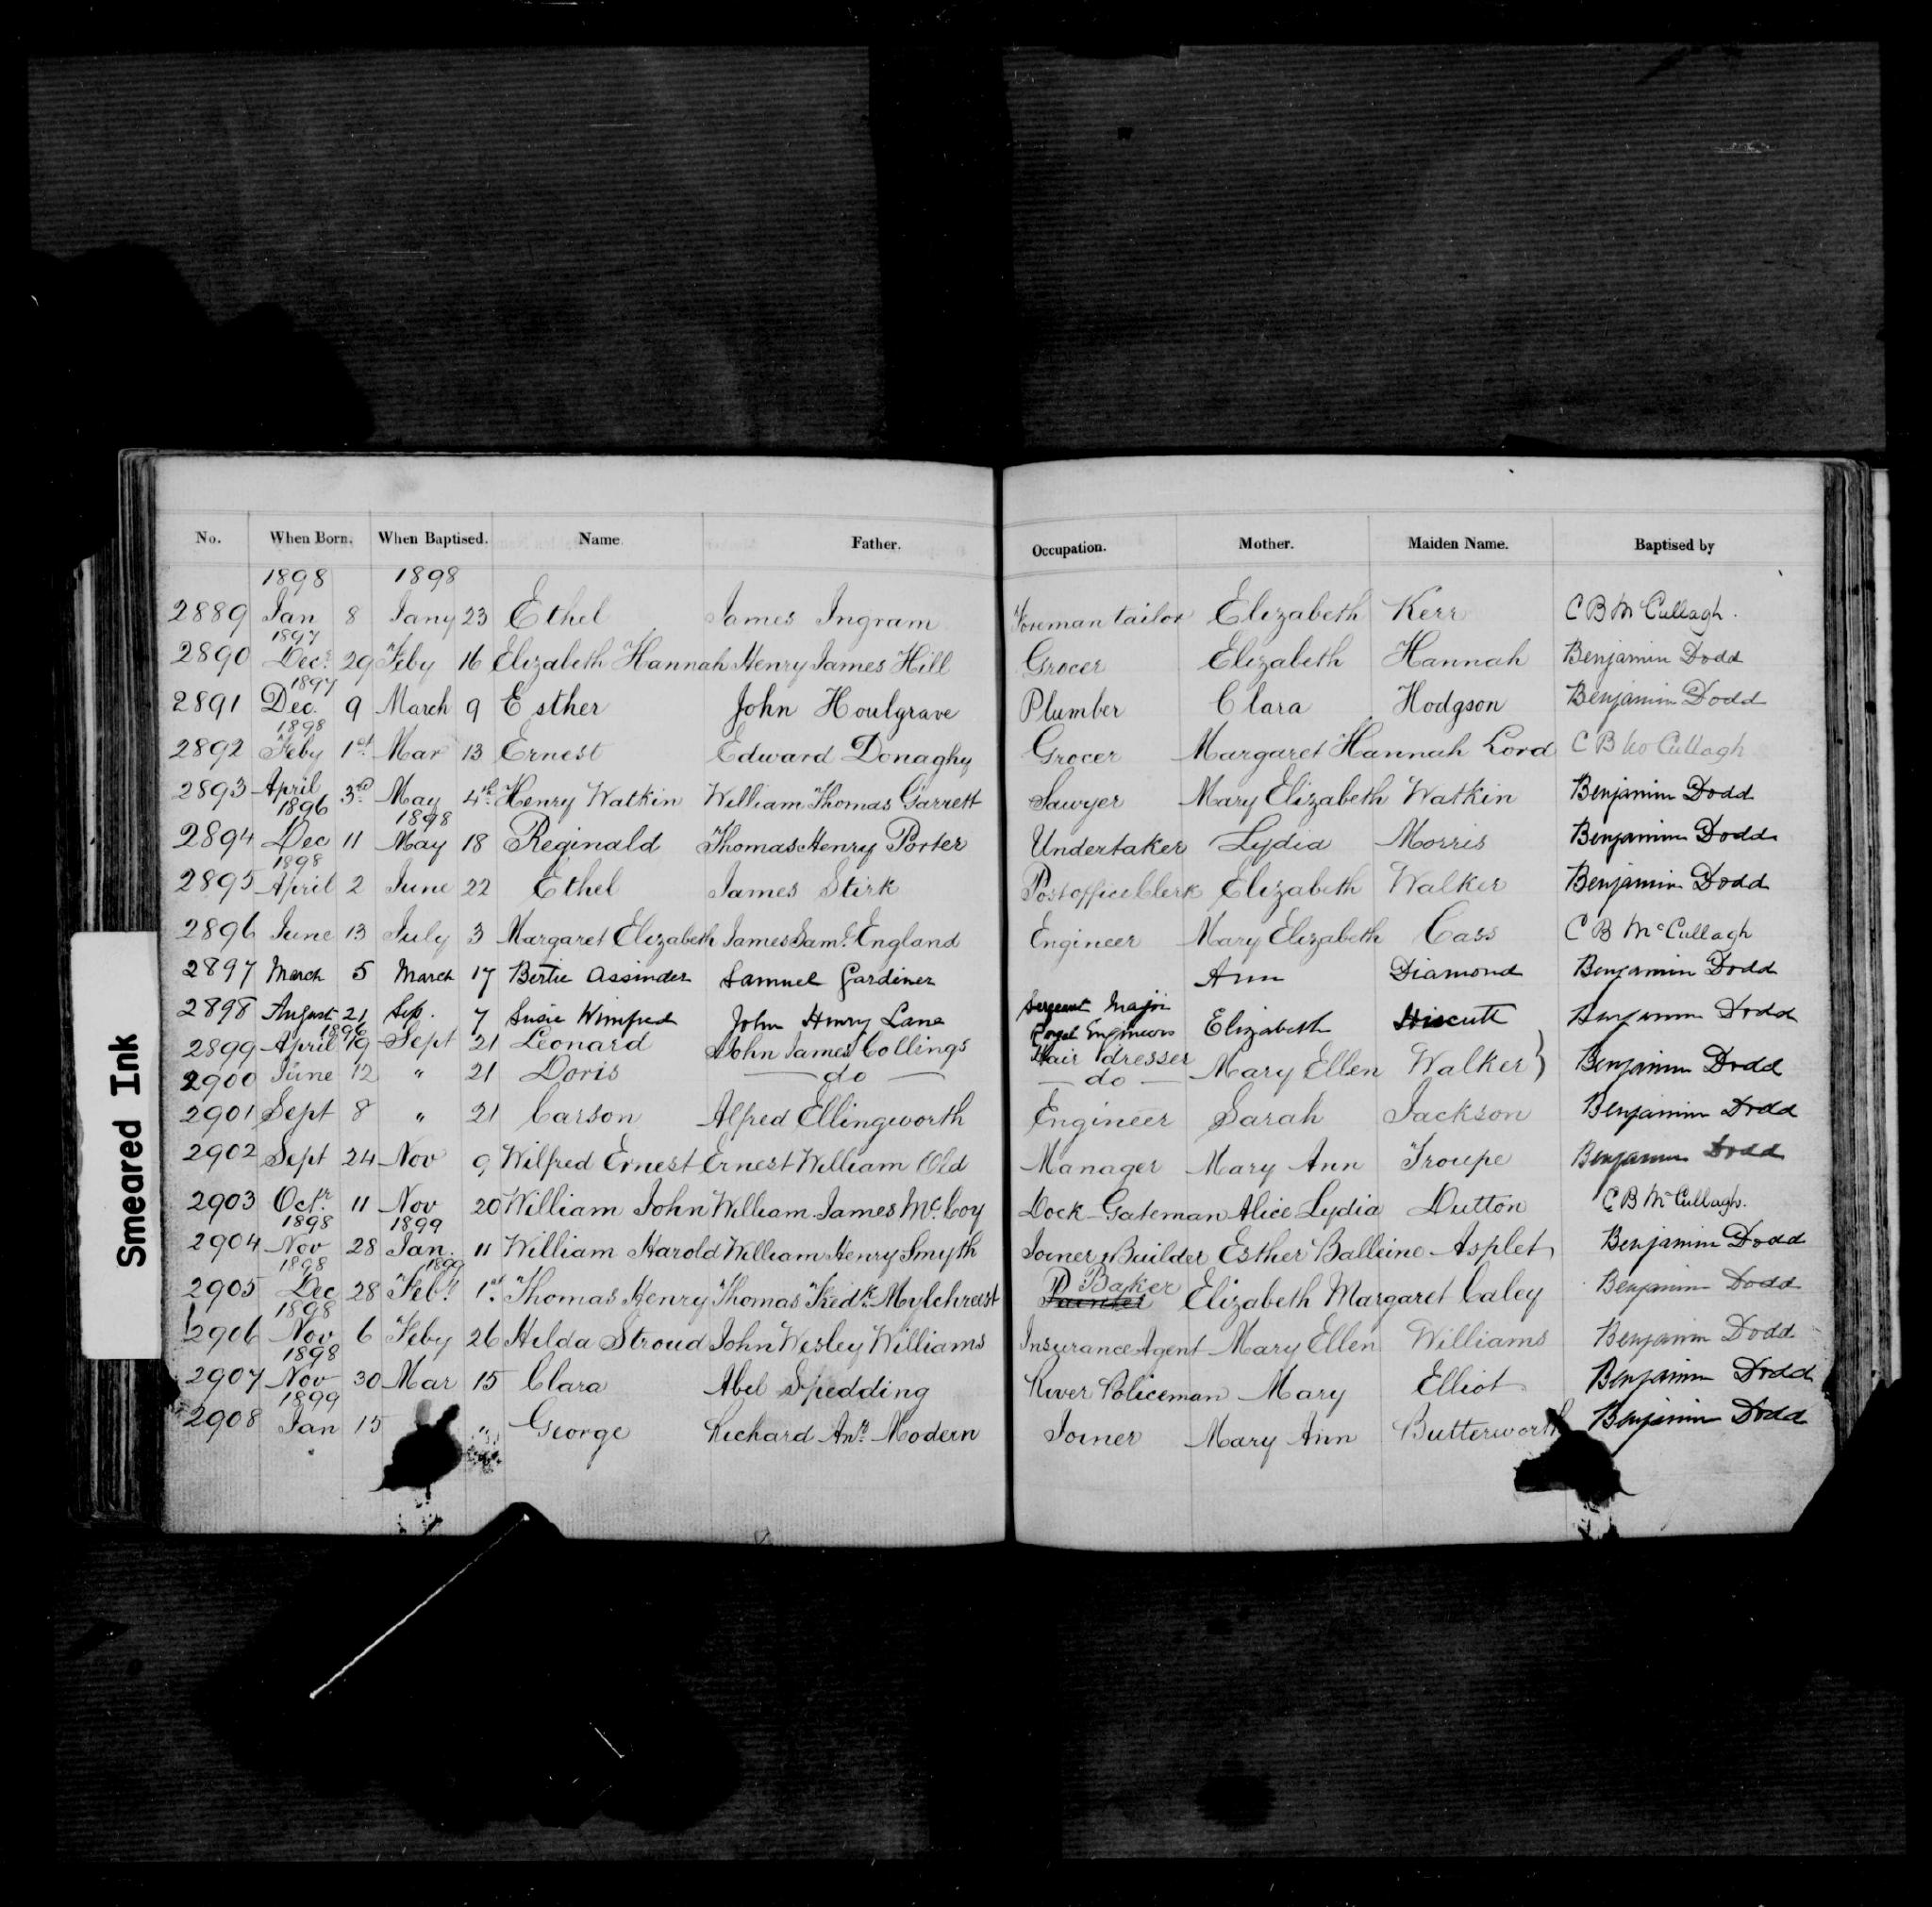 Smeared Ink
No. When Born. When Baptised. Name Father. Occupation. Mother. Maiden Name. Baptised by
1898 1898
2889 Jan 8 Jany 23 Ethel James Ingram Foreman tailor Elizabeth Kerr C B McCullagh.
1897
2890 Decr. 29 Feby 16 Elizabeth Hannah Henry James Hill Grocer Elizabeth Hannah Benjamin Dodd
1897
2891 Dec. 9 March 9 Esther John Houlgrave Plumber Clara Hodgson Benjamin Dodd
1898
2892 Feby 1st Mar 13 Ernest Edward Donaghy Grocer Margaret Hannah Lord C B McCullagh
2893 April 3rd May 4th Henry Watkin William Thomas Garrett Sawyer Mary Elizabeth Watkin Benjamin Dodd
1896 1898
2894 Dec 11 May 18 Reginald Thomas Henry Porter Undertaker Lydia Morris Benjamin Dodd
1898
2895 April 2 June 22 Ethel James Stirk Post office Clerk Elizabeth Walker Benjamin Dodd
2896 June 13 July 3 Margaret Elizabeth James Saml. England Engineer Mary Elizabeth Cass C B McCullagh
2897 March 5 March 17 Bertie Assinder Samuel Gardiner Ann Diamond Benjamin Dodd
Sergeant Major
2898 August 21 Sep. 7 Susie Winifred John Henry Lane Royal Engineers Elizabeth Benjamin Dodd
1896
2899 April 19 Sept 21 Leonard John James Collings Hair dresser
2900 June 12 " 21 Doris — do — — do — Mary Ellen Walker } Benjamin Dodd
2901 Sept 8 " 21 Carson Alfred Ellingworth Engineer Sarah Jackson Benjamin Dodd
2902 Sept 24 Nov 9 Wilfred Ernest Ernest William Old Manager Mary Ann Troupe Benjamin Dodd
2903 Octr. 11 Nov 20 William John William James McCoy Dock Gateman Alice Lydia Dutton C B McCullagh.
1898 1899
2904 Nov 28 Jan. 11 William Harold William Henry Smyth Joiner & Builder Esther Balleine Asplet Benjamin Dodd
1898 1899 Baker
2905 Dec 28 Feby 1st. Thomas Henry Thomas Fredk. Mylchreest Painter Elizabeth Margaret Caley Benjamin Dodd
1898
2906 Nov 6 Feby 26 Hilda Stroud John Wesley Williams Insurance Agent Mary Ellen Williams Benjamin Dodd
1898
2907 Nov 30 Mar 15 Clara Abel Spedding River Policeman Mary Elliot Benjamin Dodd
1899
2908 Jan 15 " George Richard Modern Joiner Mary Ann Butterworth Benjamin Dodd